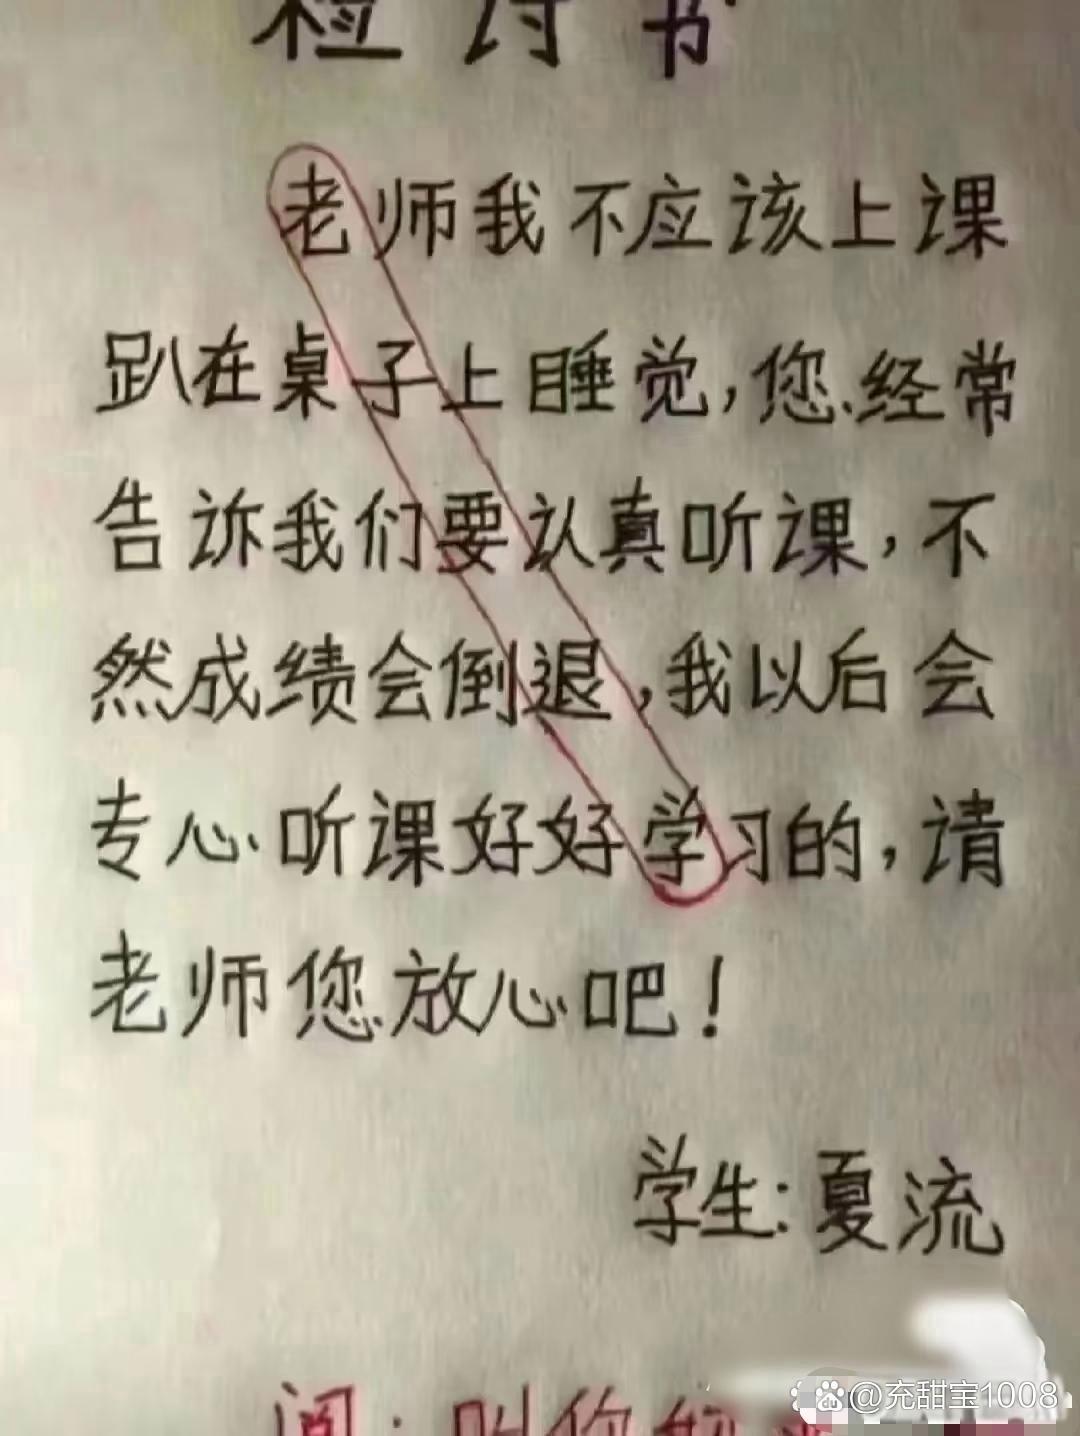 检讨书
老师我不应该上课
趴在桌子上睡觉，您经常
告诉我们要认真听课，不
然成绩会倒退，我以后会
专心听课好好学习的，请
老师您放心吧！
学生：夏流
阅：叫你
@充甜宝1008